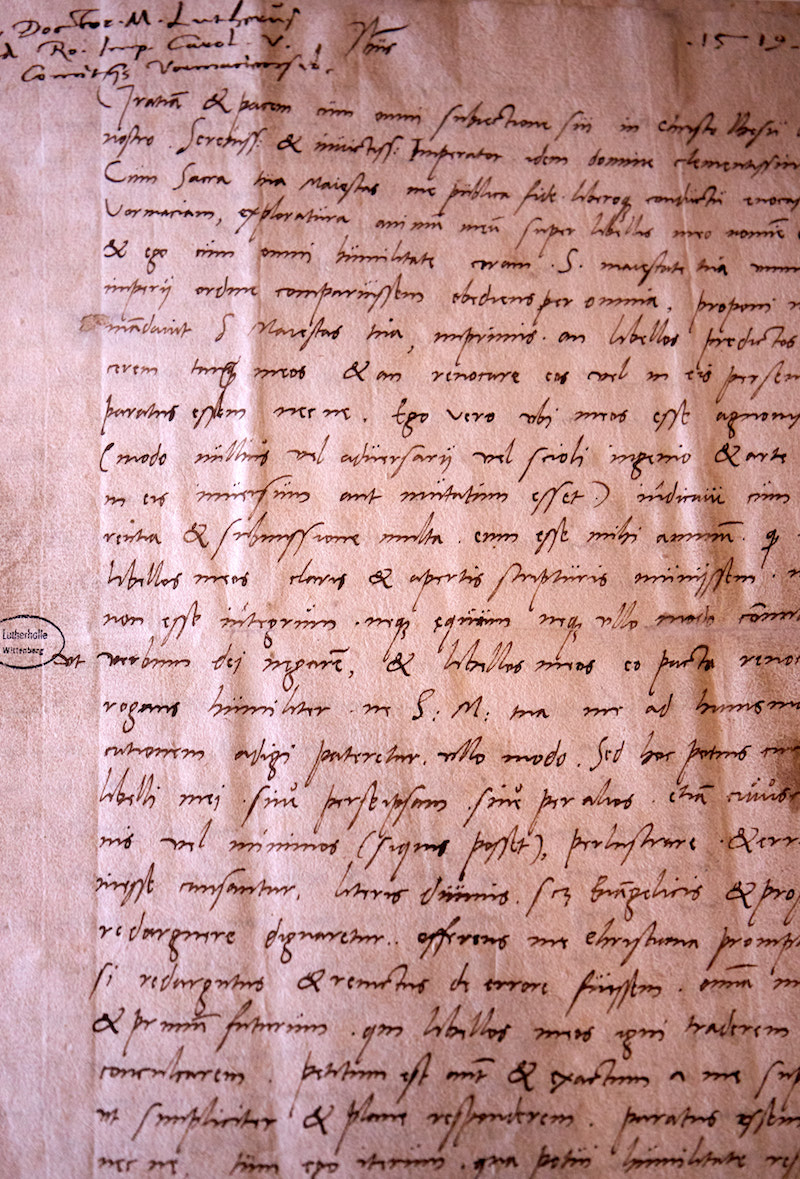 Doctor. M. Lutherus
Ro. Imp. Carol. V.
Comitiis
Ihs
. 1519.
Gratiā & pacem cum omni subiectione sui in Christo Ihesu
nostro. Sereniss: & inuictiss: Imperator idem domine clementissim
Cum Sacra tua Maiestas me publica fide liberoq conductu euoca
Vormaciam, exploratura animū meū super libellis meo nomīe
& ego cum omni humilitate coram . S. maiestate tua
imperij ordine comparuissem obediens per omnia, proponi
mandauit S Maiestas tua, imprimis . an libellos predictos
cerem tanq meos & an reuocare eos vel in eis perseu
paratus essem nec ne . Ego vero vbi meos esse agnoui
(modo nullius vel aduersarij vel scioli ingenio & arte
in eis inuersum aut mutatum esset) iudicaui cum
rentia & submissione multa . eum esse mihi animum . q
libellos meos claris & apertis scripturis muniissem .
non esse integrum . neq equum neq vllo modo
vt verbum dei negarē, & libellos meos eo pacto reuo
rogans humiliter . ne S: M: tua me ad
cutionem adigi pateretur . vllo modo . Sed hoc potius
libelli mei . siue per seipsam . siue per alios . etiā cuiusc
nis vel minimos (siquis posset), perlustrare . & err
inesse causantur, literis diuinis . scz Euāgelicis & prop
redarguere dignaretur . offerens me Christiana prompt
si redargutus & reuictus de errore fuissem . omīa
& primū futurum . qui libellos meos igni traderem
conculcarem . petitum est aūt & exactum a me sup
vt simpliciter & plane responderem . paratus essem
nec ne . tum ego iterum . qua potui humilitate res
Lutherhalle
Wittenberg